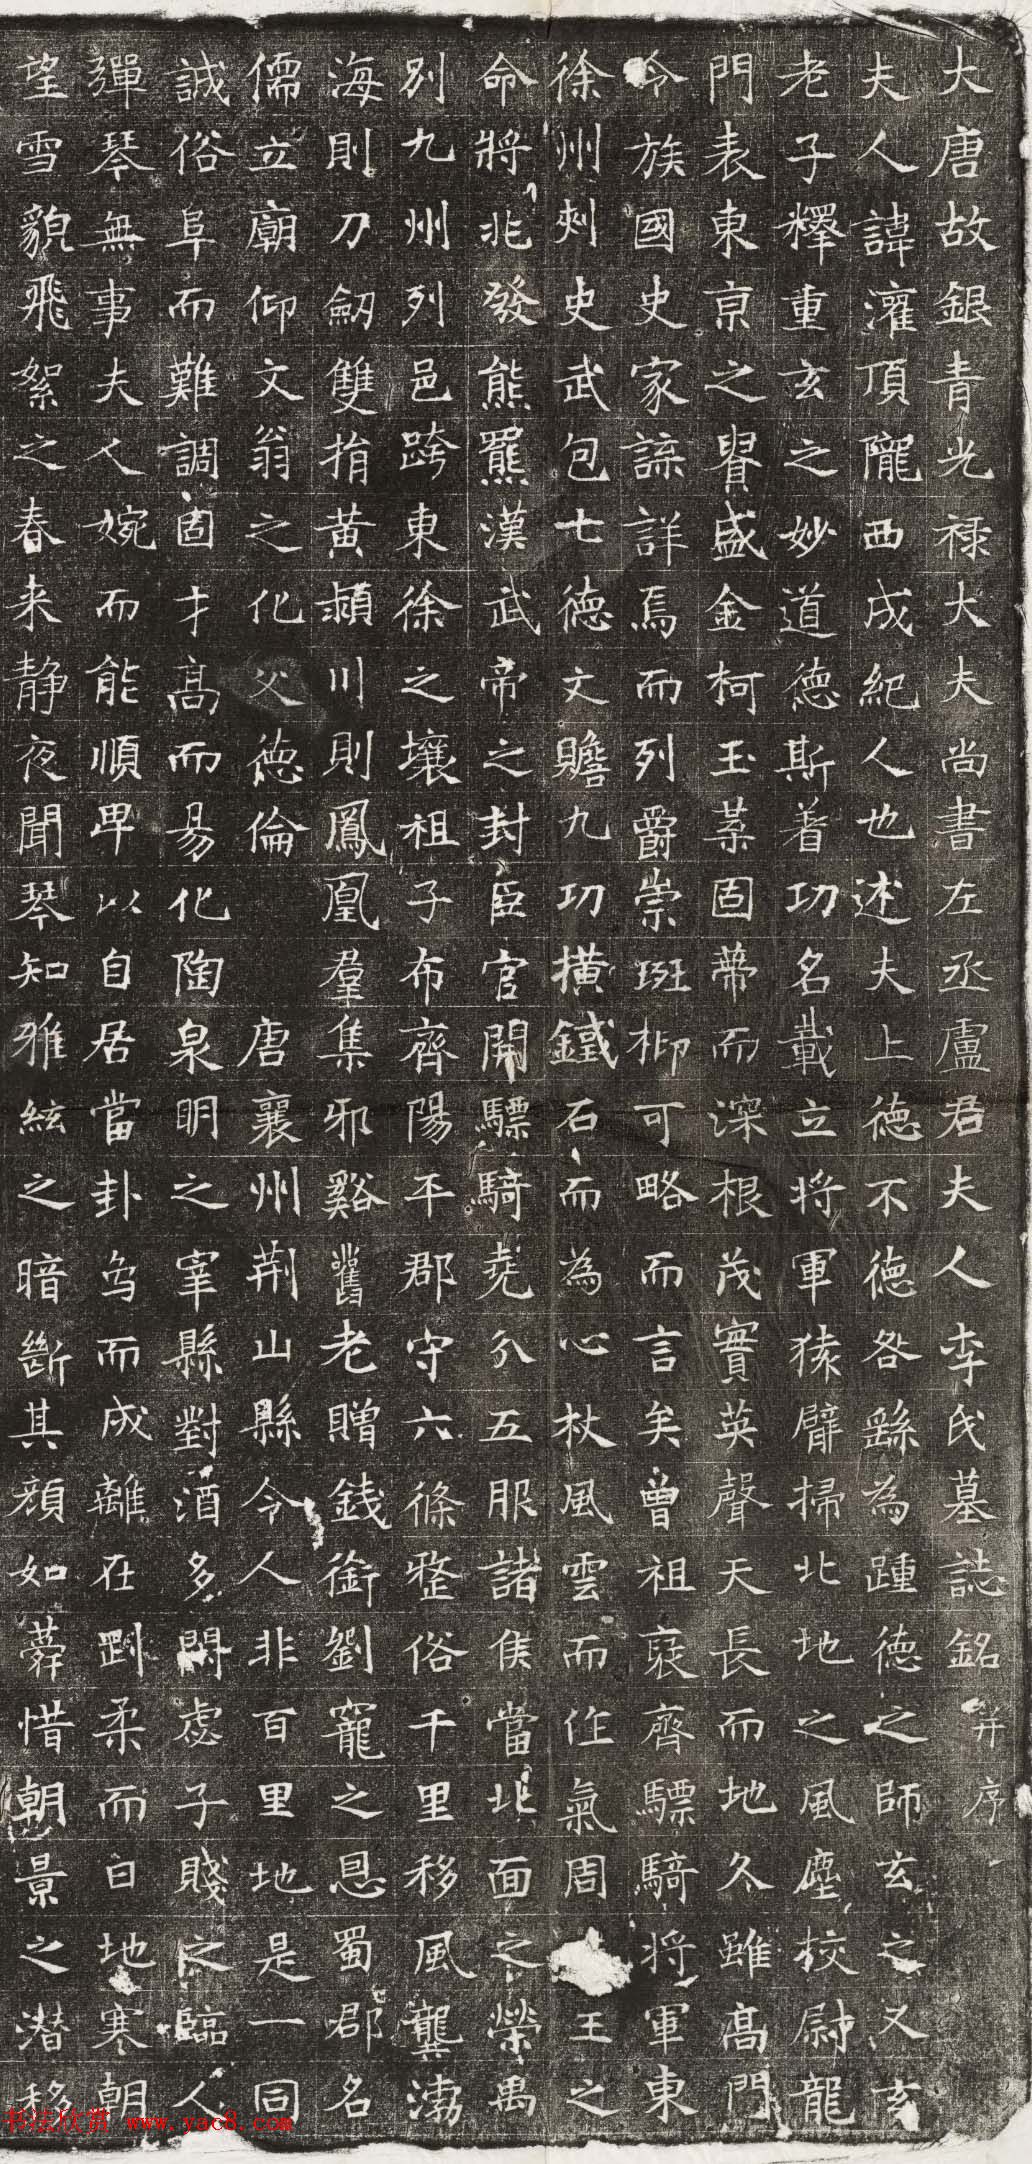 大唐故銀青光禄大夫尚書左丞盧君夫人李氏墓誌銘并序
夫人諱灌頂隴西成紀人也述夫上德不德各繇為踵德之師玄之又玄
老子釋重玄之妙道德斯著功名載立將軍猿臂掃北地之風塵校尉龍
門表東京之貴盛金柯玉葉固蒂而深根茂實英聲天長而地久雖高門
令族國史家諜詳焉而列爵崇班抑可略而言矣曾祖裦齊驃騎將軍東
徐州刺史武包七德文贍九功橫鐵石而為心杖風雲而作氣周王之
命將北發熊羆漢武帝之封臣官開驃騎堯分五服諸侯當北面之榮禹
別九州列邑跨東徐之壤祖子布齊陽平郡守六條整俗千里移風龔渤
海則刀劒雙捐黃潁川則鳳凰羣集邪谿舊老贈錢銜劉寵之恩蜀郡名
儒立廟仰文翁之化父德倫唐襄州荆山縣令人非百里地是一同
誠俗阜而難調固才高而易化陶泉明之宰縣對酒多閑虙子賤之臨人
彈琴無事夫人婉而能順卑以自居當卦為而成離在剛柔而曰地寒朝
望雪貌飛絮之春来靜夜聞琴知雅絃之暗斷其顏如蕣惜朝景之潛移
书法欣赏 www.yac8.com